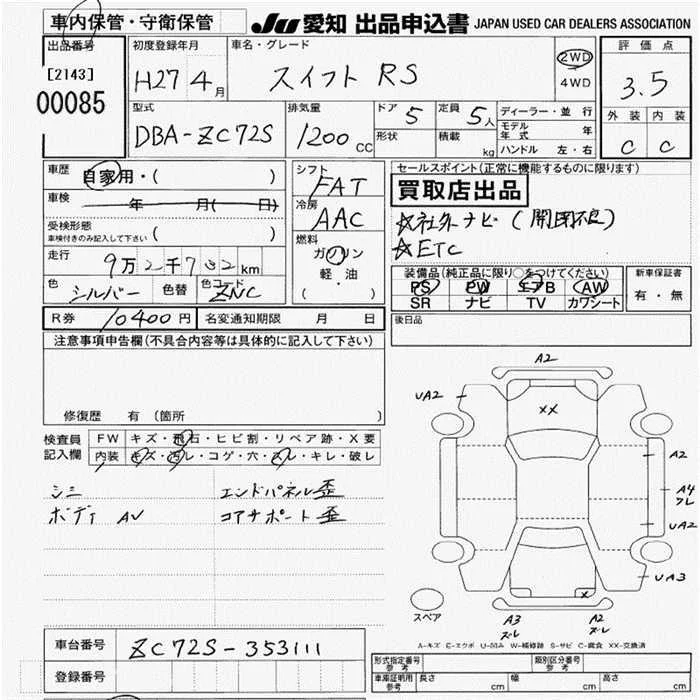 車内保管・守衛保管
JU 愛知 出品申込書 JAPAN USED CAR DEALERS ASSOCIATION
出品番号
[2143]
00085
初度登録年月
H27 4 月
車名・グレード
スイフト RS
2WD
4WD
評価点
3.5
外装 内装
C C
型式
DBA-ZC72S
排気量
1200 CC
ドア 5
形状
定員 5人
積載 kg
ディーラー・並行
モデル年式 年
ハンドル 左・右
車歴
自家用・( )
車検
年 月( 日)
受検形態
車検付きのみ記入して下さい ( )
走行
km
色 シルバー
色替
色コード ZNC
シフト
FAT
冷房
AAC
燃料
ガソリン
軽・油
( )
セールスポイント(正常に機能するものに限ります)
買取店出品
☆社外ナビ(開閉不良)
☆ETC
装備品(純正品に限り○をつけてください)
PS PW エアB AW
SR ナビ TV カワシート
新車保証書
有・無
R券 10400 円
名変通知期限 月 日
後日品
注意事項申告欄(不具合内容等は具体的に記入して下さい)
修復歴 有 (箇所 )
検査員
記入欄
FW キズ・飛石・ヒビ割・リペア跡・X要
内装 キズ・汚レ・コゲ・穴・スレ・キレ・破レ
シミ
ボディ AV
エンドパネル歪
コアサポート歪
A2
UA2
XX
A2
A4
クレ
UA2
UA3
X
スペア
A3
ズレ
A2
ズレ
A-キズ E-エクボ U-凹み W-補修跡 S-サビ C-腐食 XX-交換済
車台番号 ZC72S-353111
登録番号
形式指定番号
参考
類別区分番号
参考
車庫証明用
参考
長さ cm
幅 cm
高さ cm